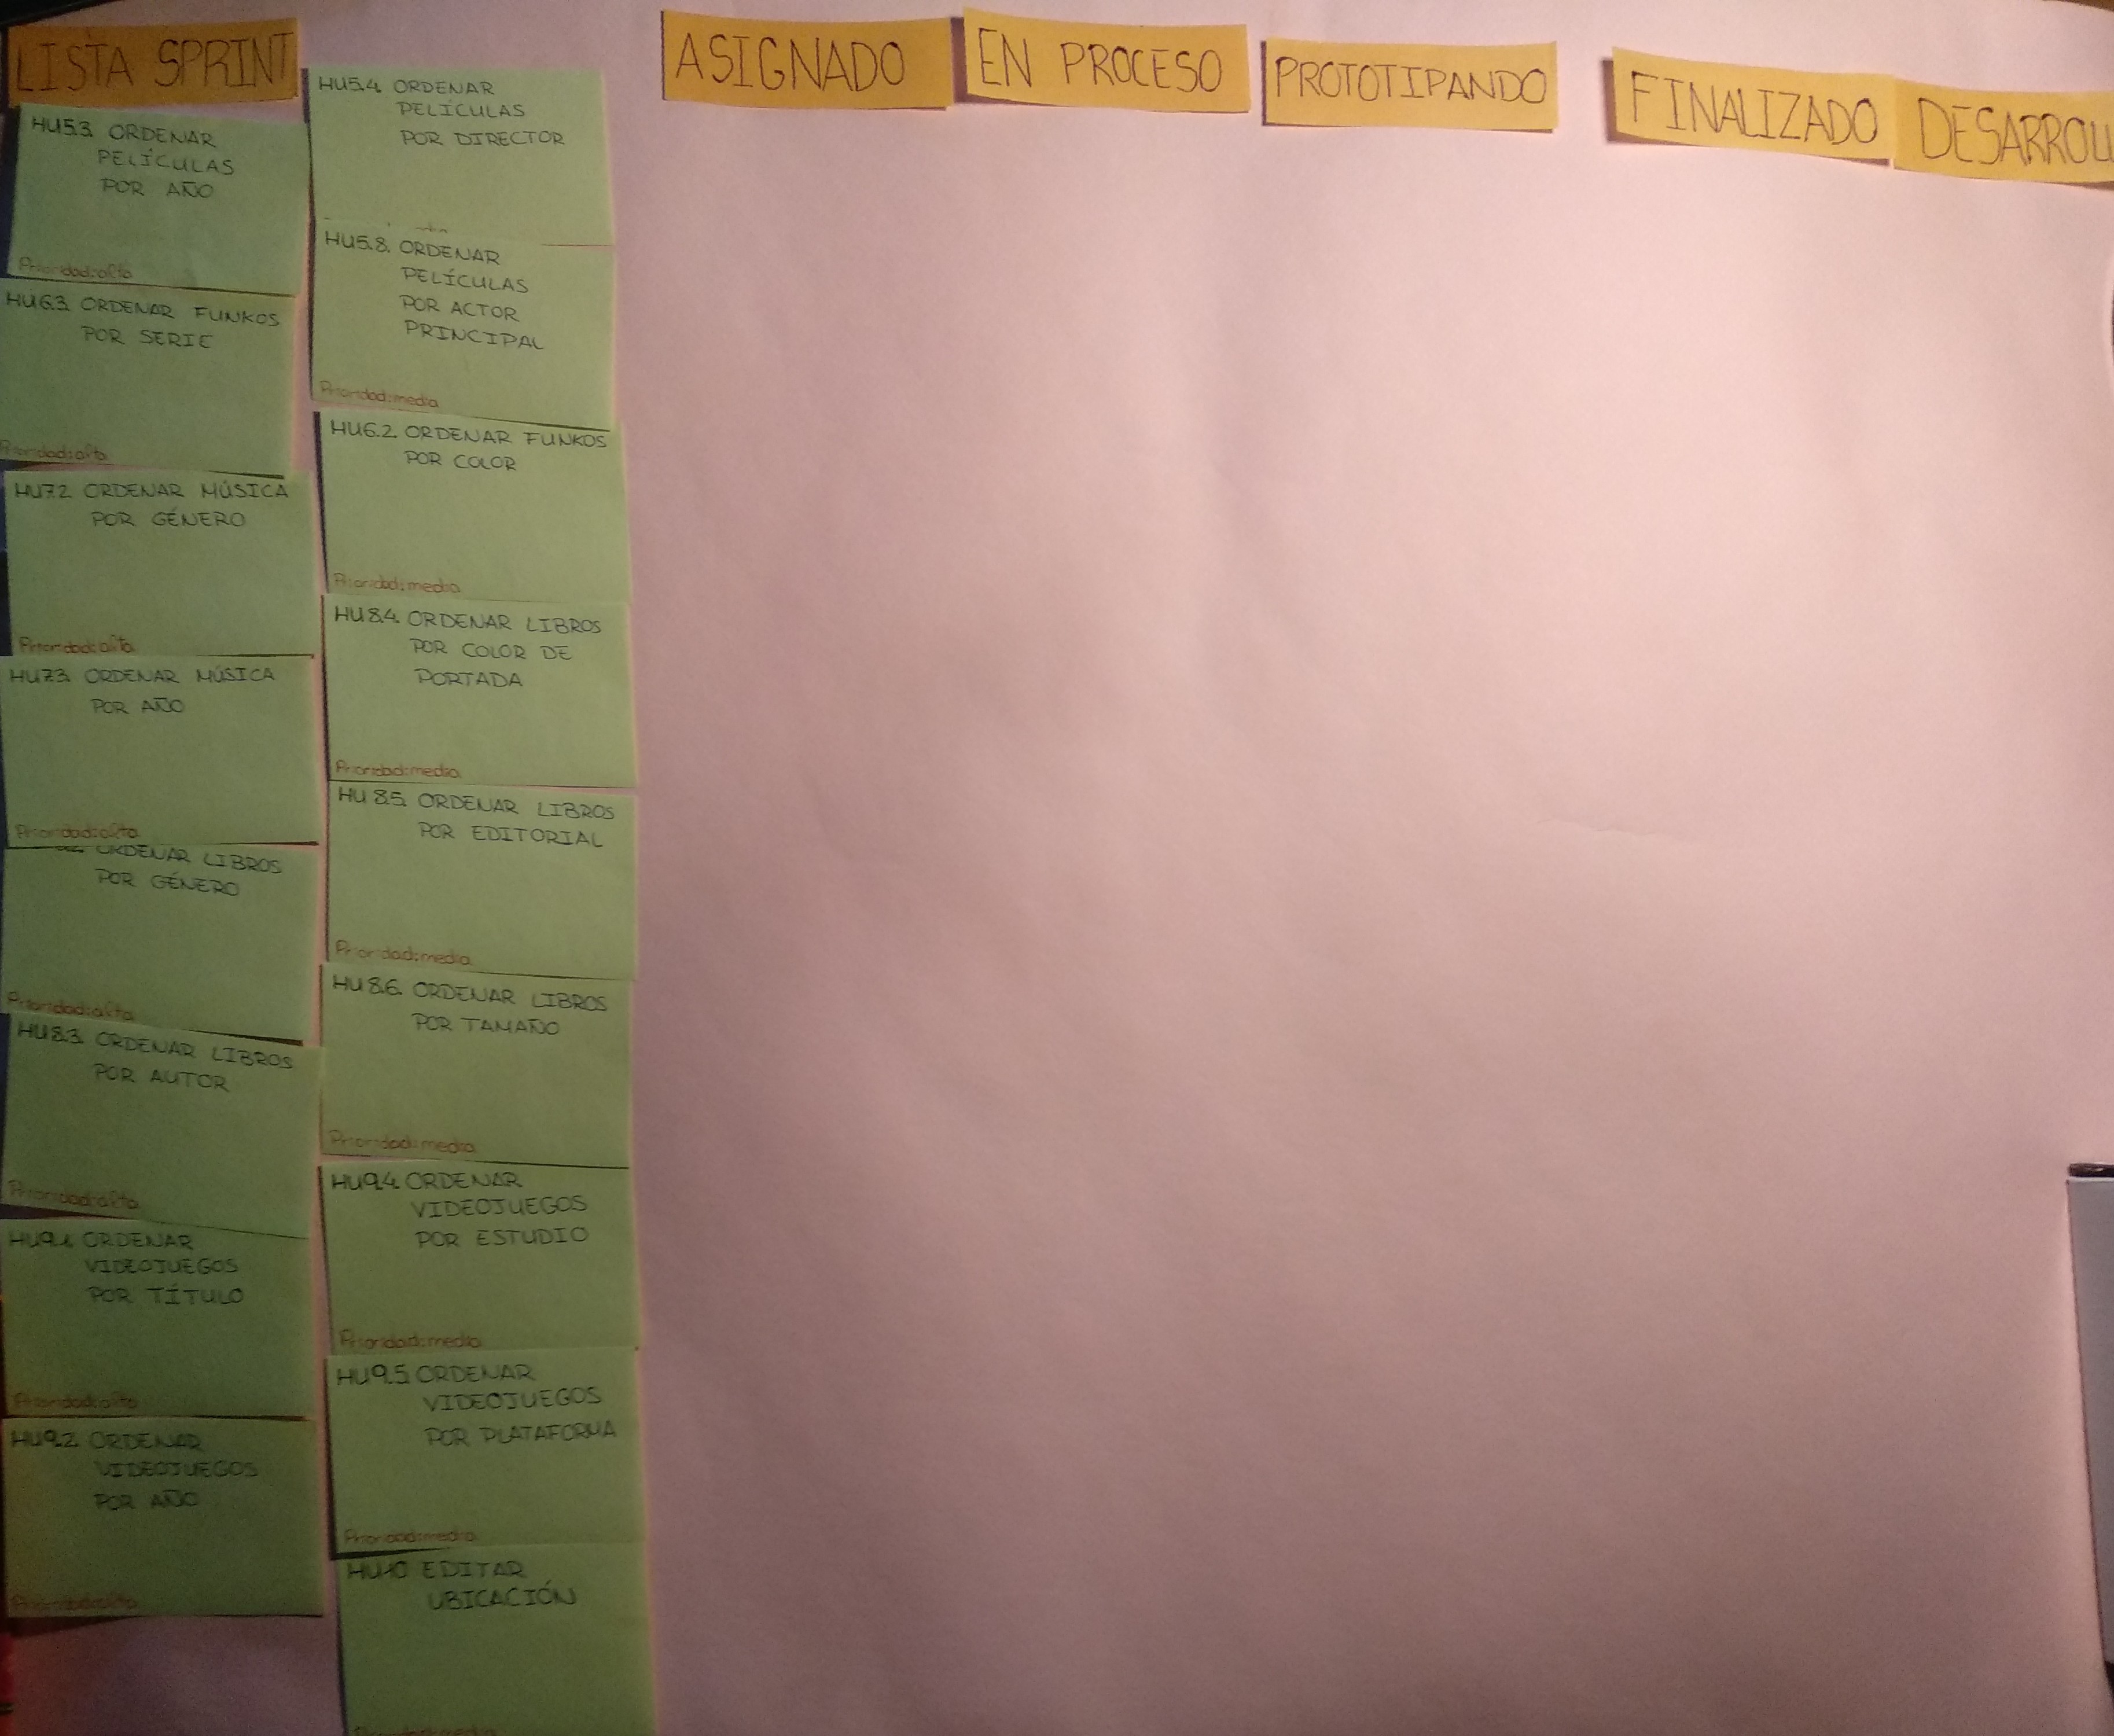 LISTA SPRINT
HU5.3. ORDENAR
PELÍCULAS
POR AÑO
Prioridad: alta
HU6.3. ORDENAR FUNKOS
POR SERIE
Prioridad: alta
HU7.2. ORDENAR MÚSICA
POR GÉNERO
Prioridad: alta
HU7.3. ORDENAR MÚSICA
POR AÑO
Prioridad: alta
ORDENAR LIBROS
POR GÉNERO
Prioridad: alta
HU8.3. ORDENAR LIBROS
POR AUTOR
Prioridad: alta
HU9.1. ORDENAR
VIDEOJUEGOS
POR TÍTULO
Prioridad: alta
HU9.2. ORDENAR
VIDEOJUEGOS
POR AÑO
Prioridad: alta
HU5.4. ORDENAR
PELÍCULAS
POR DIRECTOR
HU5.8. ORDENAR
PELÍCULAS
POR ACTOR
PRINCIPAL
Prioridad: media
HU6.2. ORDENAR FUNKOS
POR COLOR
Prioridad: media
HU8.4. ORDENAR LIBROS
POR COLOR DE
PORTADA
Prioridad: media
HU 8.5. ORDENAR LIBROS
POR EDITORIAL
Prioridad: media
HU 8.6. ORDENAR LIBROS
POR TAMAÑO
Prioridad: media
HU9.4. ORDENAR
VIDEOJUEGOS
POR ESTUDIO
Prioridad: media
HU9.5. ORDENAR
VIDEOJUEGOS
POR PLATAFORMA
Prioridad: media
HU10 EDITAR
UBICACIÓN
Prioridad: media
ASIGNADO
EN PROCESO
PROTOTIPANDO
FINALIZADO
DESARROLL